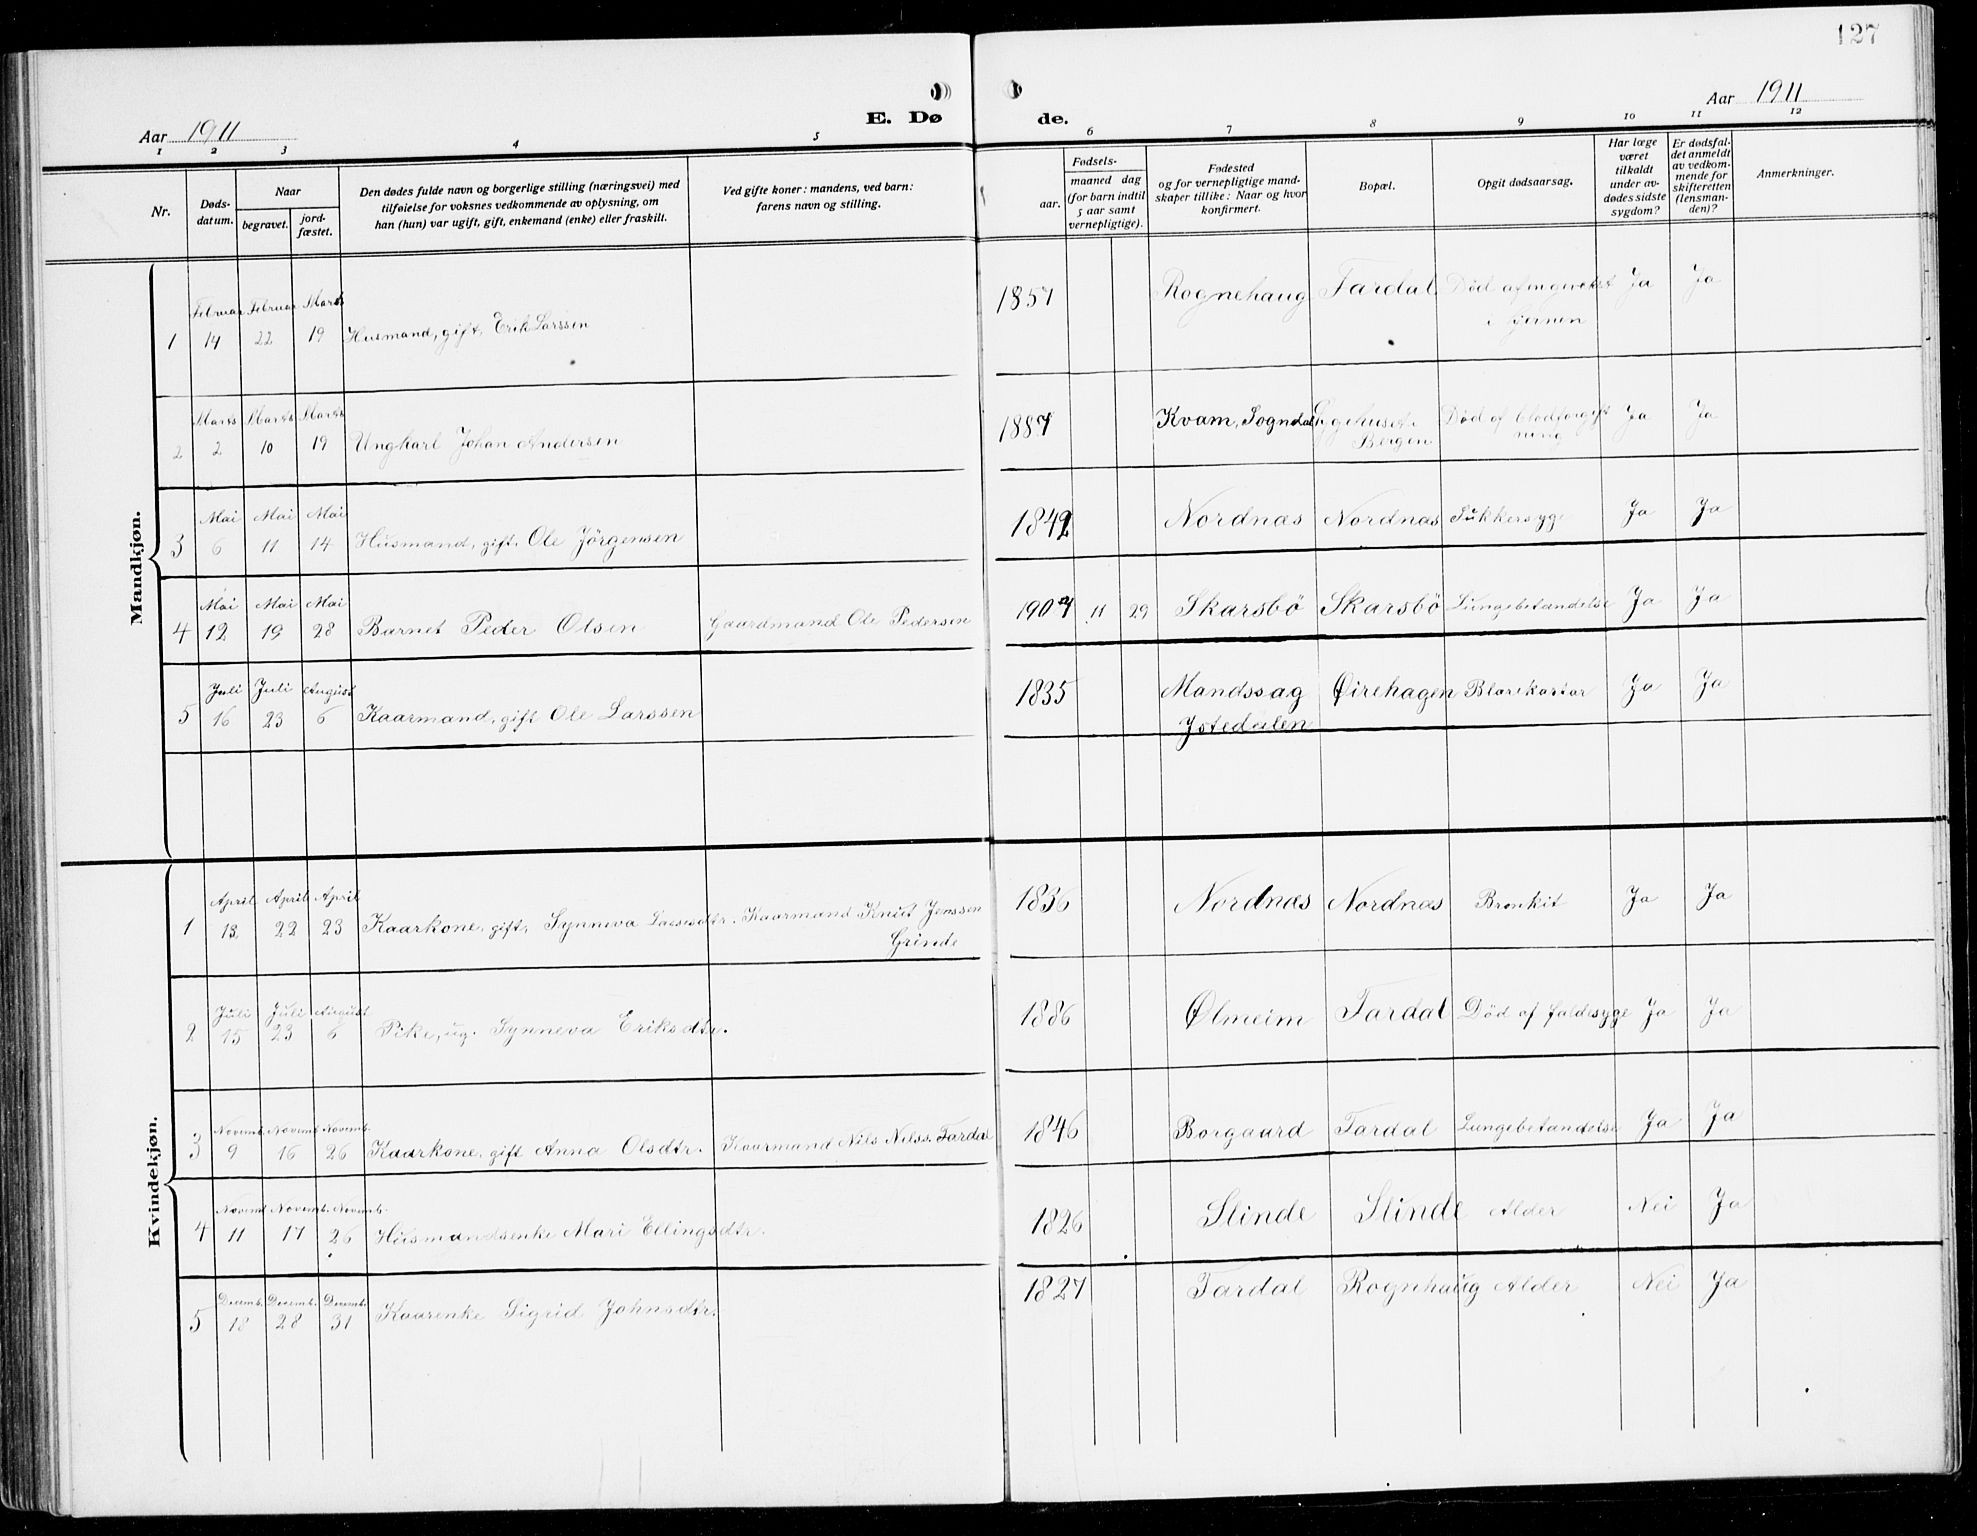 127
Aar 1911
E. Dø
de.
Aar 1911
1 2 3 4 5 6 7 8 9 10 11 12
Nr.
Døds-
datum.
Naar
begravet.
jord-
fæstet.
Den dødes fulde navn og borgerlige stilling (næringsvei) med
tilføielse for voksnes vedkommende av oplysning, om
han (hun) var ugift, gift, enkemand (enke) eller fraskilt.
Ved gifte koner: mandens, ved barn:
farens navn og stilling.
Fødsels-
aar.
maaned dag
(for barn indtil
5 aar samt
vernepligtige).
Fødested
og for vernepligtige mand-
skaper tillike: Naar og hvor
konfirmert.
Bopæl.
Opgit dødsaarsag.
Har læge
været
tilkaldt
under av-
dødes sidste
sygdom?
Er dødsfal-
det anmeldt
av vedkom-
mende for
skifteretten
(lensman-
den)?
Anmerkninger.
Mandkjøn.
Februar Februar Marts
1 14 22 19 Husmand, gift, Erik Larssen 1857 Rognehaug Fardal Død af ja Ja
i hjernen
Marts Marts Marts
2 2 10 19 Ungkarl Johan Andersen 1887 Kvam, Sogndal Sygehuset Død af Blodforgift Ja Ja
Bergen ning
Mai Mai Mai
3 6 11 14 Husmand, gift, Ole Jörgensen 1842 Nordnæs Nordnæs Sukkersyge Ja Ja
Mai Mai Mai
4 12 19 28 Barnet Peder Olsen Gaardmand Ole Pedersen 11 29 Skarsbö Skarsbö Lungebetændelse Ja Ja
Juli Juli August
5 16 23 6 Kaarmand, gift Ole Larssen 1835 Mandssag Øirehagen Blærekatar Ja Ja
Jstedalen
Kvindekjøn.
April April April
1 13 22 23 Kaarkone, gift, Synneva Kaarmand Knut Jenssen 1836 Nordnæs Nordnæs Bronkit Ja Ja
Grinde
Juli Juli August
2 15 23 6 Pike, ug. Synneva Eriksdtr. 1886 Ølmeim Fardal Död af faldesyge Ja Ja
Novemb. Novemb. Novemb.
3 9 16 26 Kaarkone, gift Anna Olsdtr. Kaarmand Nils Nilss. Fardal 1846 Borgaard Fardal Lungebetændelse Ja Ja
Novemb. Novemb. Novemb.
4 11 17 26 Husmandsenke Mari Ellingsdtr. 1826 Slinde Slinde Alder Nei Ja
Decemb. Decemb. Decemb.
5 18 28 31 Kaarenke Sigrid Johnsdtr. 1827 Fardal Rognhaug Alder Nei Ja